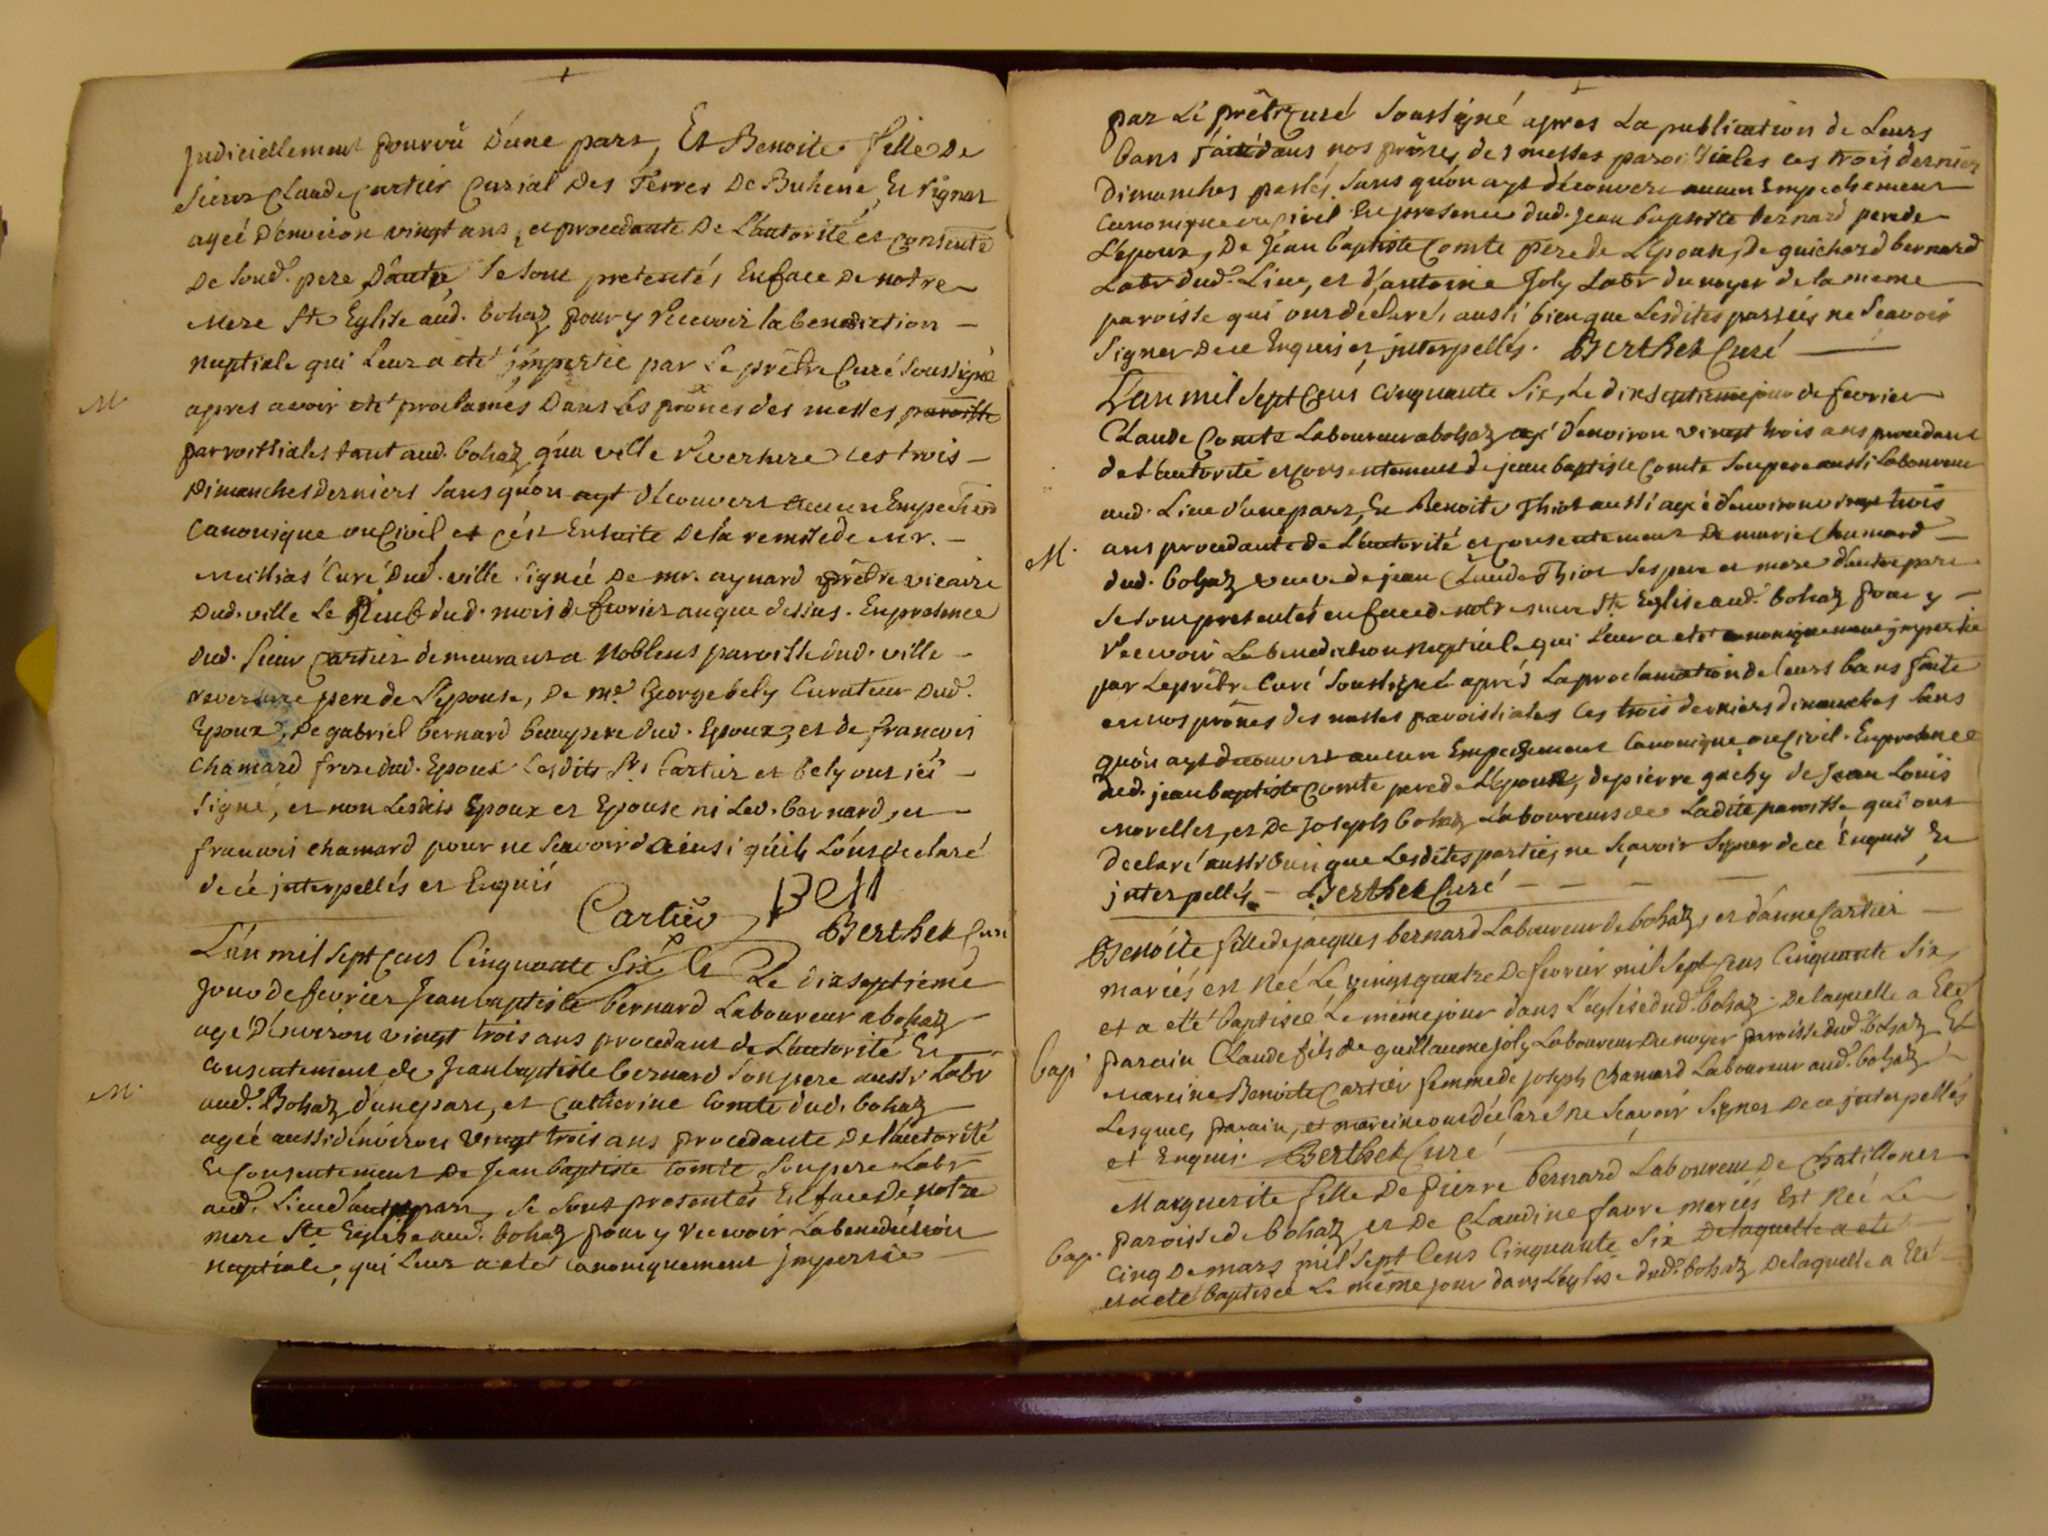 Judiciellement pourvû D'une part, Et Benoite fille De
Sieur Claude Cartier Curial Des Terres De Buhene, Et
ageé D'environ vingt ans, et procedante De L'autorité et consente
De Soud. pere D'autre, Se Sont presentés En face De notre
Mere Ste Eglise aud. bohaz pour y Recevoir la benediction
nuptiale qui Leur a eté impertie par Le prêtre Curé Soussigné
M
apres avoir eté proclamés Dans Les prônes des messes paroisse
parroissiales tant aud. bohaz qu'a ville Reversure ces trois
Dimanches derniers Sans qu'on ayt découvert aucun
Canonique ou Civil et c'est Ensuite De la remise de Mr.
Curé Dud. ville Signée De mr. aynard prêtre vicaire
Dud. ville Le dud. mois de fevrier an que dessus. En presence
Dud. Sieur Cartier demeurant a Noblens paroisse dud. ville
reversure pere de L'epouse, De me. George bely Curateur Dud.
Epoux, De gabriel bernard beaupere dud. Epoux, et de francois
Chamard frere dud. Epoux Lesdits Srs Cartier et bely ont ici
Signé, et non Lesdits Epoux et Epouse ni Led. bernard, et
francois chamard pour ne Scavoir ainsi qu'ils L'ont declaré
de ce interpellés et Enquis
Cartier Beli
Berthet Curé
L'an mil Sept Cens Cinquante Six, Le Le dixseptieme
Jour de fevrier Jean baptiste bernard Laboureur a bohaz
agé D'environ vingt trois ans procedant de L'autorité Et
Consentement de Jean baptiste bernard Son pere aussi Labr
M.
aud. Bohaz d'une part, et Catherine Comte dud. bohaz
ageé aussi d'environ vingt trois ans procedante De l'autorité
Et Consentement De Jean baptiste Comte Son pere Labr
aud. Lieu d'autre part, Se Sont presentés En face De notre
mere Ste Eglise aud. bohaz pour y Recevoir La benediction
nuptiale, qui Leur a eté canoniquement impertie
par Le prêtre Curé Soussigné apres La publication de Leurs
bans faite dans nos prônes des messes paroissiales ces trois derniers
Dimanches passés Sans qu'on ayt découvert aucun Empechement
Canonique ou Civil En presence dud. Jean baptiste bernard pere de
L'epoux, De Jean baptiste Comte pere de L'epouse, de guichard bernard
Labr dud. Lieu, et d'antoine Joly Labr du noyer de la meme
paroisse qui ont déclaré, aussi bien que Lesdites parties ne Scavoir
Signer De ce Enquis et interpellés. Berthet Curé
L'an mil Sept Cens Cinquante Six, Le dix Septieme jour de fevrier
Claude Comte Laboureur a bohaz agé d'environ vingt trois ans procedant
de L'autorité et consentement de jean baptiste Comte Son pere aussi Laboureur
aud. Lieu d'une part, Et Benoite Thiot aussi ageé d'environ vingt trois
M.
ans procedante de L'autorité et consentement De marie Chamard
dud. bohaz veuve de jean Claude Thiot Ses pere et mere d'autre part
Se Sont presentés en face de notre mere Ste Eglise aud. bohaz pour y
Recevoir La benediction nuptiale qui Leur a eté canoniquement impertie
par Le prêtre Curé Soussigné aprés La proclamation de leurs bans faite
en nos prônes des messes paroissiales Ces trois derniers dimanches Sans
qu'on ayt decouvert aucun Empechement Canonique ou Civil. En presence
Dud. jean baptiste Comte pere de L'epoux, de pierre gachy de Jean Louis
Morellet, et De Joseph bohaz Laboureurs de Ladite paroisse qui ont
declaré aussi bien que Lesdites parties ne Scavoir Signer de ce Enquis Et
interpellés. Berthet Curé
Benoite fille de jacques bernard Laboureur de bohaz, et d'anne Cartier
mariés est Neé Le vingt quatre De fevrier mil Sept Cens Cinquante Six
et a etté baptiseé Le même jour dans L'eglise dud. bohaz. De laquelle a Eté
bap.
parain Claude fils de guillaume joly Laboureur Du noyer paroisse dud. bohaz Et
mareine Benoite Cartier femme de joseph Chamard Laboureur aud. bohaz
Lesquels parain, et mareine ont déclaré ne Scavoir Signer De ce interpellés
et Enquis. Berthet Curé
Marguerite fille De pierre bernard Laboureur De Chatillonet
bap.
paroisse de bohaz et De Claudine favre mariés Est Neé Le
Cinq De mars mil Sept Cens Cinquante Six De laquelle a eté
et a eté baptisee Le même jour dans L'eglise dud. bohaz De laquelle a Eté